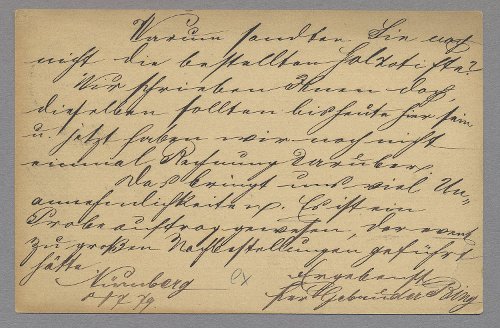 Warum sandten Sie noch
nicht die bestellten Holzstifte?
Wir schrieben Ihnen doch
dieselben sollten bis heute hier sein
u. jetzt haben wir noch nicht
einmal Rechnung darüber.
Das bringt uns viel Un-
annehmlichkeiten. Es ist ein
Probeauftrag gewesen, der event.
zu großen Nachbestellungen geführt
hätte.
Nürnberg
Ergebenst
Gebrüder Bing